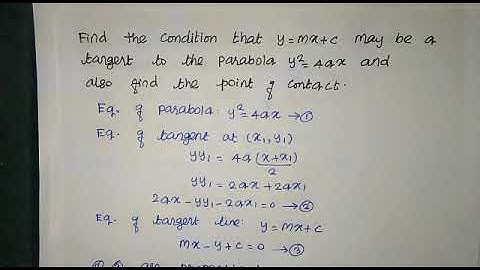 Find the condition that y=mx+c may be a
tangent to the parabola y²=4ax and
also find the point of contact.
Eq. of parabola: y²=4ax →①
Eq. of tangent at (x₁,y₁)
yy₁ = 4a(x+x₁)/2
yy₁ = 2ax+2ax₁
2ax-yy₁-2ax₁=0 →②
Eq. of tangent line: y=mx+c
mx-y+c=0 →③